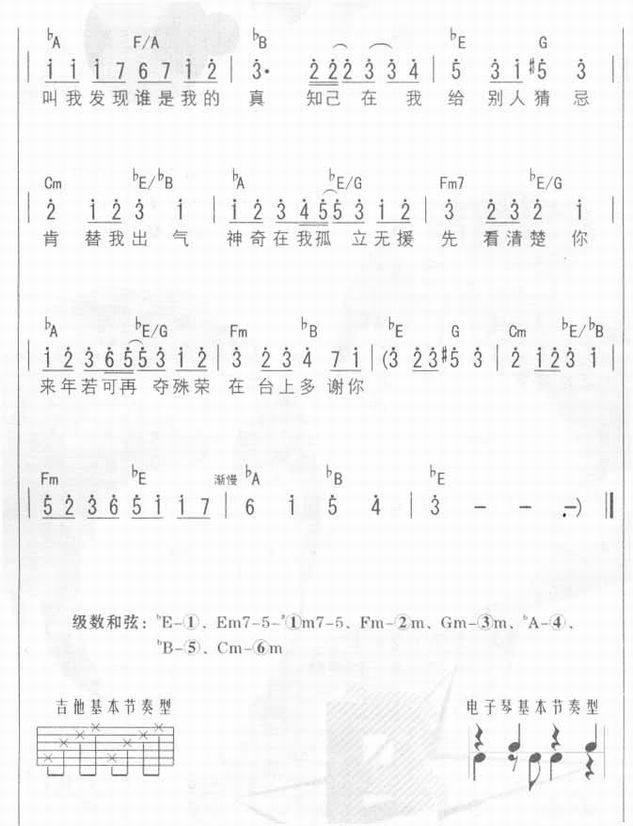 ♭A F/A ♭B ♭E G
| i̲ i̲ i̲ 7̲ 6̲ 7̲ i̲ 2̲ | 3· 2̲ 2̲ 2̲ 3̲ 3̲ 4̲ | 5 3̲ i̲ ♯5 3 |
叫我发现谁是我的 真 知己 在 我 给 别人猜 忌
Cm ♭E/♭B ♭A ♭E/G Fm7 ♭E/G
| 2 i̲ 2̲ 3 i | i̲ 2̲ 3̲ 4̲ 5̲ 5̲ 3̲ i̲ 2̲ | 3 2̲ 3̲ 2 i |
肯 替我出 气 神奇在我孤 立无援 先 看清楚 你
♭A ♭E/G Fm ♭B ♭E G Cm ♭E/♭B
| i̲ 2̲ 3̲ 6̲ 5̲ 5̲ 3̲ i̲ 2̲ | 3 2̲ 3̲ 4 7̲ i̲ | (3 2̲ 3̲ ♯5 3 | 2 i̲ 2̲ 3 i |
来年若可再 夺殊荣 在 台上多 谢你
Fm ♭E 渐慢 ♭A ♭B ♭E
| 5̲ 2̲ 3̲ 6̲ 5̲ i̲ i̲ 7̲ | 6 i 5 4 | 3 – – –) ‖
级数和弦：♭E-①、Em7-5-♯①m7-5、Fm-②m、Gm-③m、♭A-④、
♭B-⑤、Cm-⑥m
吉他基本节奏型 电子琴基本节奏型